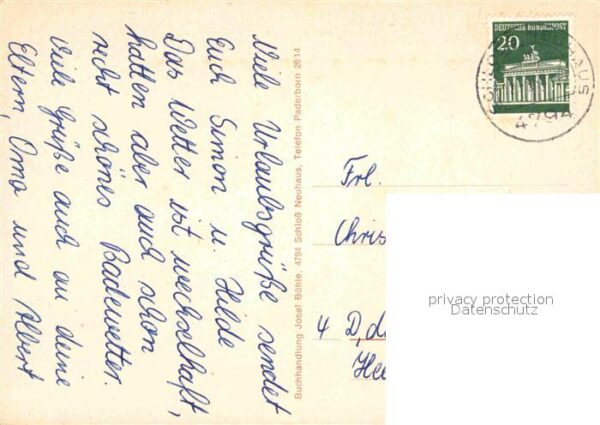 Viele Urlaubsgrüße sendet
Euch Simon u. Hilde
Das Wetter ist wechselhaft,
hatten aber auch schon
recht schönes Badewetter.
Viele Grüße auch an deine
Eltern, Oma und Albert
Buchhandlung Josef Böhle, 4794 Schloß Neuhaus, Telefon Paderborn 2614
DEUTSCHE BUNDESPOST
20
HAUS
4794
Frl.
Chris
4 D, d
Hee
privacy protection
Datenschutz